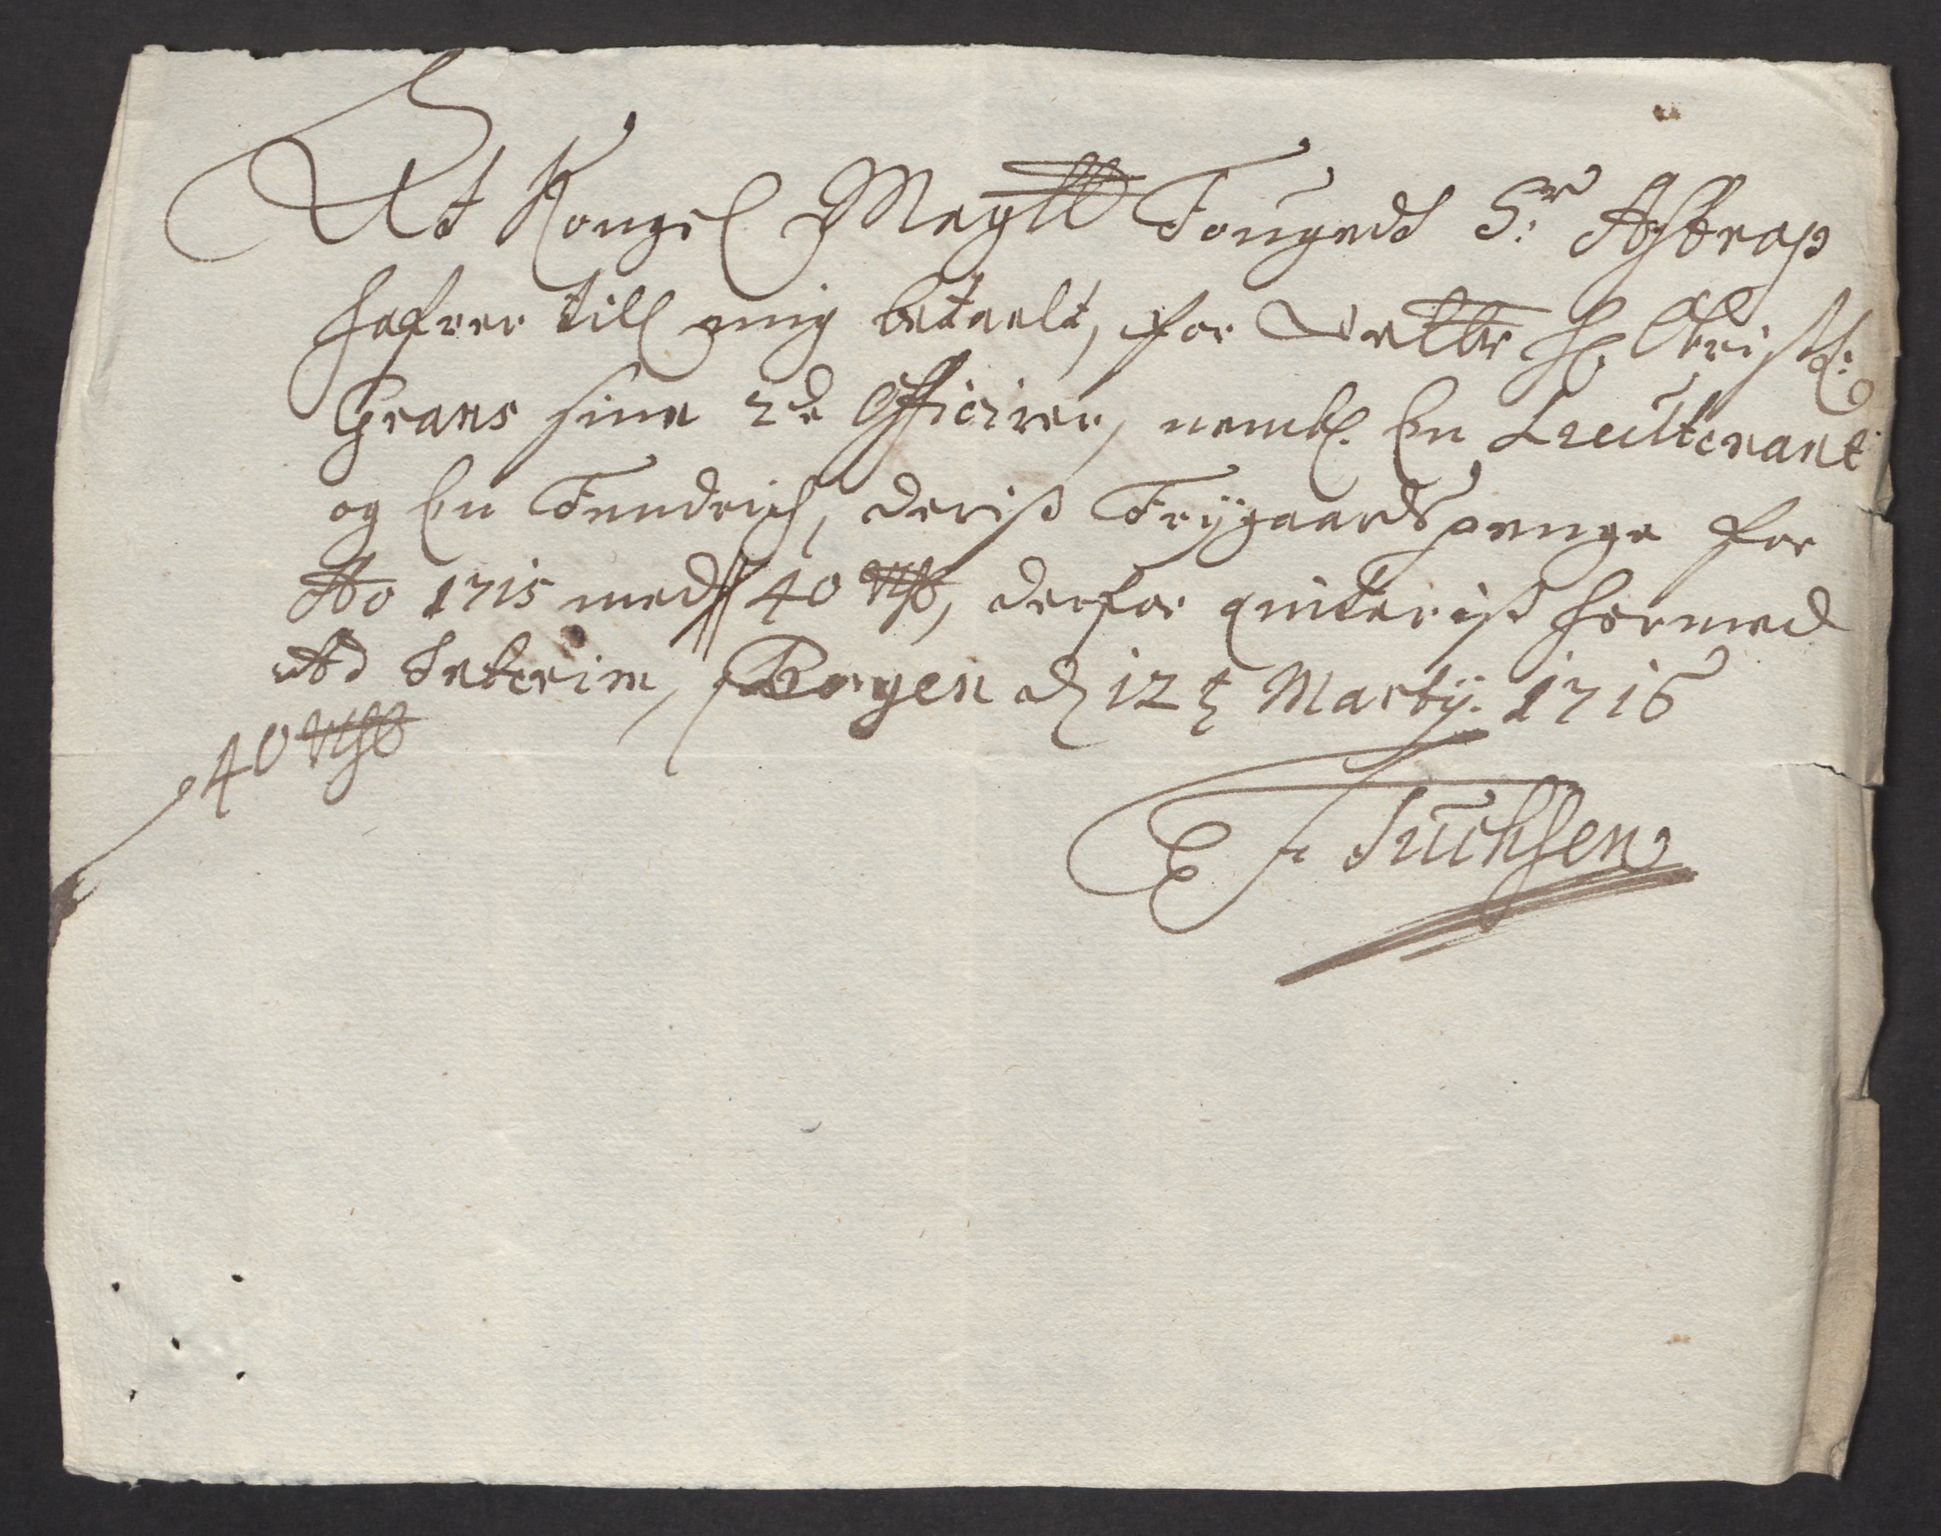 At Kongel Maytts Fougedt Sr. Astrup
hafver till mig betaelt, for Retter H. Christ:
Grans sine 2de Officirer, nembl. En Lieutenant
og En Fendrich, deris Frygaards penge for
Ao 1715 med 40 Rdr, derfor quiteris hermed
Ad Interim, Bergen d 12t Marty. 1716
40 Rdr
E F Tuchsen